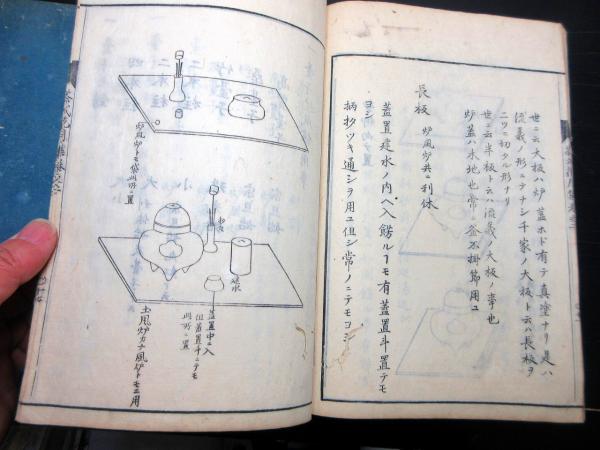 世ニ云大板ハ炉蓋ホド有テ真塗ナリ是ハ
流義ノ形ニテナシ千家ノ大板ト云ハ長板ヲ
二ツニ切タル形ナリ
世ニ云半板ト云ハ流義ノ大板ノ事也
炉蓋ハ水地也常ニ釜不掛節用ユ
長板 炉風炉共ニ利休
蓋置建水ノ内ヘ入餝ルコモ有蓋置斗置テモ
ヨシ
柄抄ツキ通シヲ用ユ但シ常ノニテモヨシ
炉風炉トモ
置
建水
蓋置中ニ入
但蓋置斗ニテモ
此所ニ置
土風炉カナ風炉トモニ用